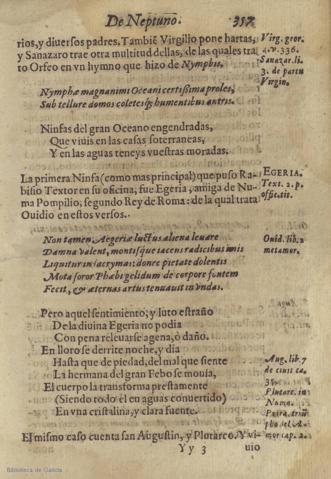 De Neptuno. 357
rios, y diuersos padres. Tambiẽ Virgilio pone hartas,
y Sanazaro trae otra multitud dellas, de las quales tra
to Orfeo en vn hymno que hizo de Nymphis.
Virg. geor.
4. v. 336.
Sanazar. li.
3. de partu
Virgin.
Nymphæ magnanimi Oceani certissima proles,
Sub tellure domos coletesq; humentibus antris.
Ninfas del gran Oceano engendradas,
Que viuis en las casas soterraneas,
Y en las aguas teneys vuestras moradas.
La primera Ninfa (como mas principal) que puso Ra-
bisio Textor en su oficina, fue Egeria, amiga de Nu-
ma Pompilio, segundo Rey de Roma: de la qual trata
Ouidio en estos versos.
EGERIA.
Text. 2. p.
officin.
Non tamen Aegeriæ luctus aliena leuare
Damna valent, montisque iacens radicibus imis
Liquitur in lacrymas: donec pietate dolentis
Mota soror Phæbi gelidum de corpore fontem
Fecit, & æternas artus tenuauit in vndas.
Ouid. lib. 2
metamor.
Pero aquel sentimiento, y luto estraño
De la diuina Egeria no podia
Con pena releuarse agena, ò daño.
En lloro se derrite noche, y dia
Hasta que de piedad, del mal que siente
La hermana del gran Febo se mouia,
El cuerpo la transforma prestamente
(Siendo todo èl en aguas conuertido)
En vna cristalina, y clara fuente.
Aug. lib. 7
de ciuit. ca.
35.
Plutarc. in
Numa.
El mismo caso cuenta san Augustin, y Plutarco. Y vi-
mor cap. 2.
Yy 3 uio
Biblioteca de Galicia